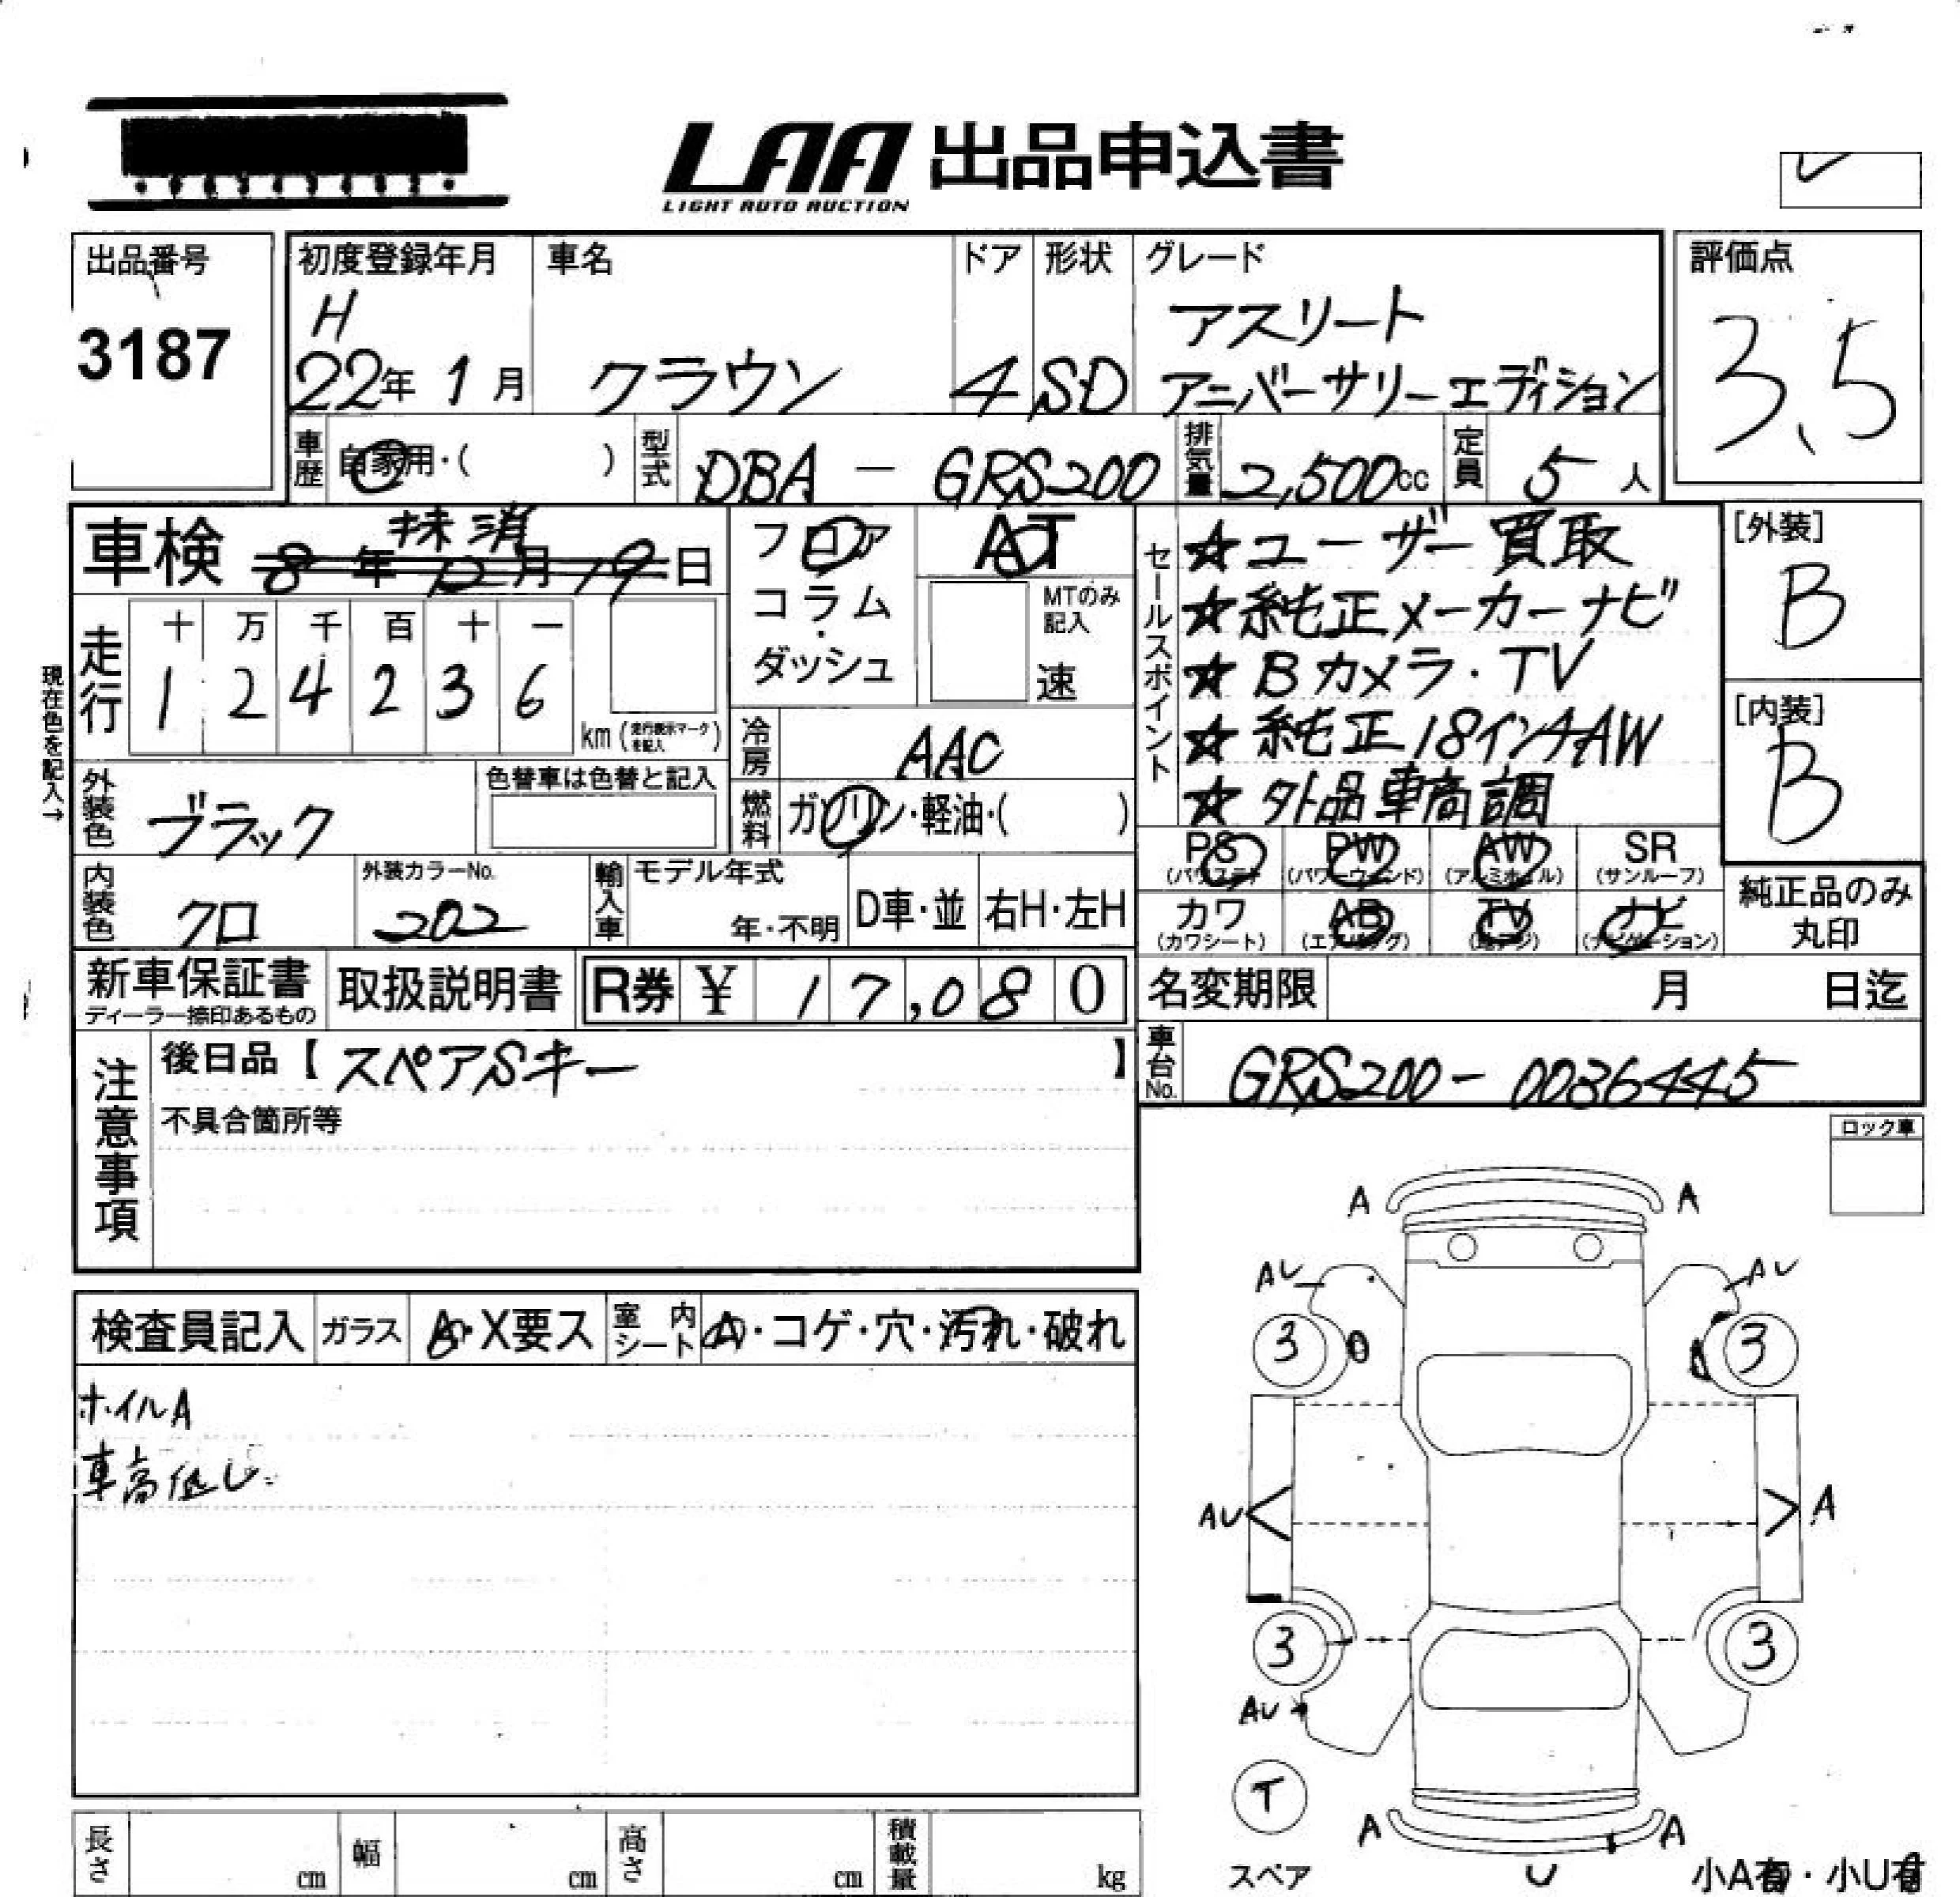 LAA 出品申込書
LIGHT AUTO AUCTION
出品番号
3187
初度登録年月
H
22年 1月
車名
クラウン
ドア
4
形状
SD
グレード
アスリート
アニバーサリーエディション
評価点
3.5
車歴 自家用・( )
型式 DBA - GRS200
排気量 2,500cc
定員 5人
車検 8年 12月 19日
抹消
フロア
コラム
・
ダッシュ
AT
MTのみ
記入
速
セールスポイント
☆ユーザー買取
☆純正メーカーナビ
☆Bカメラ・TV
☆純正18インチAW
☆外品車高調
[外装]
B
[内装]
B
現在色を記入→
走行
十 万 千 百 十 一
1 2 4 2 3 6
km(走行表示マークを記入)
冷房 AAC
燃料 ガソリン・軽油・( )
外装色 ブラック
色替車は色替と記入
内装色 クロ
外装カラーNo.
202
輸入車
モデル年式
年・不明
D車・並
右H・左H
PS
(パワステ)
PW
(パワーウィンド)
AW
(アルミホイル)
SR
(サンルーフ)
カワ
(カワシート)
AB
(エアバッグ)
TV
(地デジ)
ナビ
(ナビゲーション)
純正品のみ
丸印
新車保証書
ディーラー捺印あるもの
取扱説明書
R券 ¥ 17,080
名変期限 月 日迄
車台No. GRS200-0036445
注意事項
後日品【スペアSキー】
不具合箇所等
ロック車
検査員記入
ガラス A・X要ス
室内シート A・コゲ・穴・汚れ・破れ
ホイルA
車高低し
A A
AU AU
3 3
AU A
3 3
AU
T
スペア
A A
U
小A有・小U有
長さ cm
幅 cm
高さ cm
積載量 kg